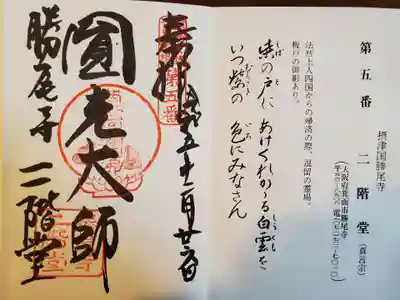 摂津国勝尾寺
第五番 二階堂 (真言宗)
大阪府箕面市勝尾寺
法然上人四国からの帰洛の際、逗留の霊場。
板戸の御影あり。
柴の戸に あけくれかゝる白雲を
いつ紫の 色にみなさん
奉拝
第五番
圓光大師
勝尾寺 二階堂